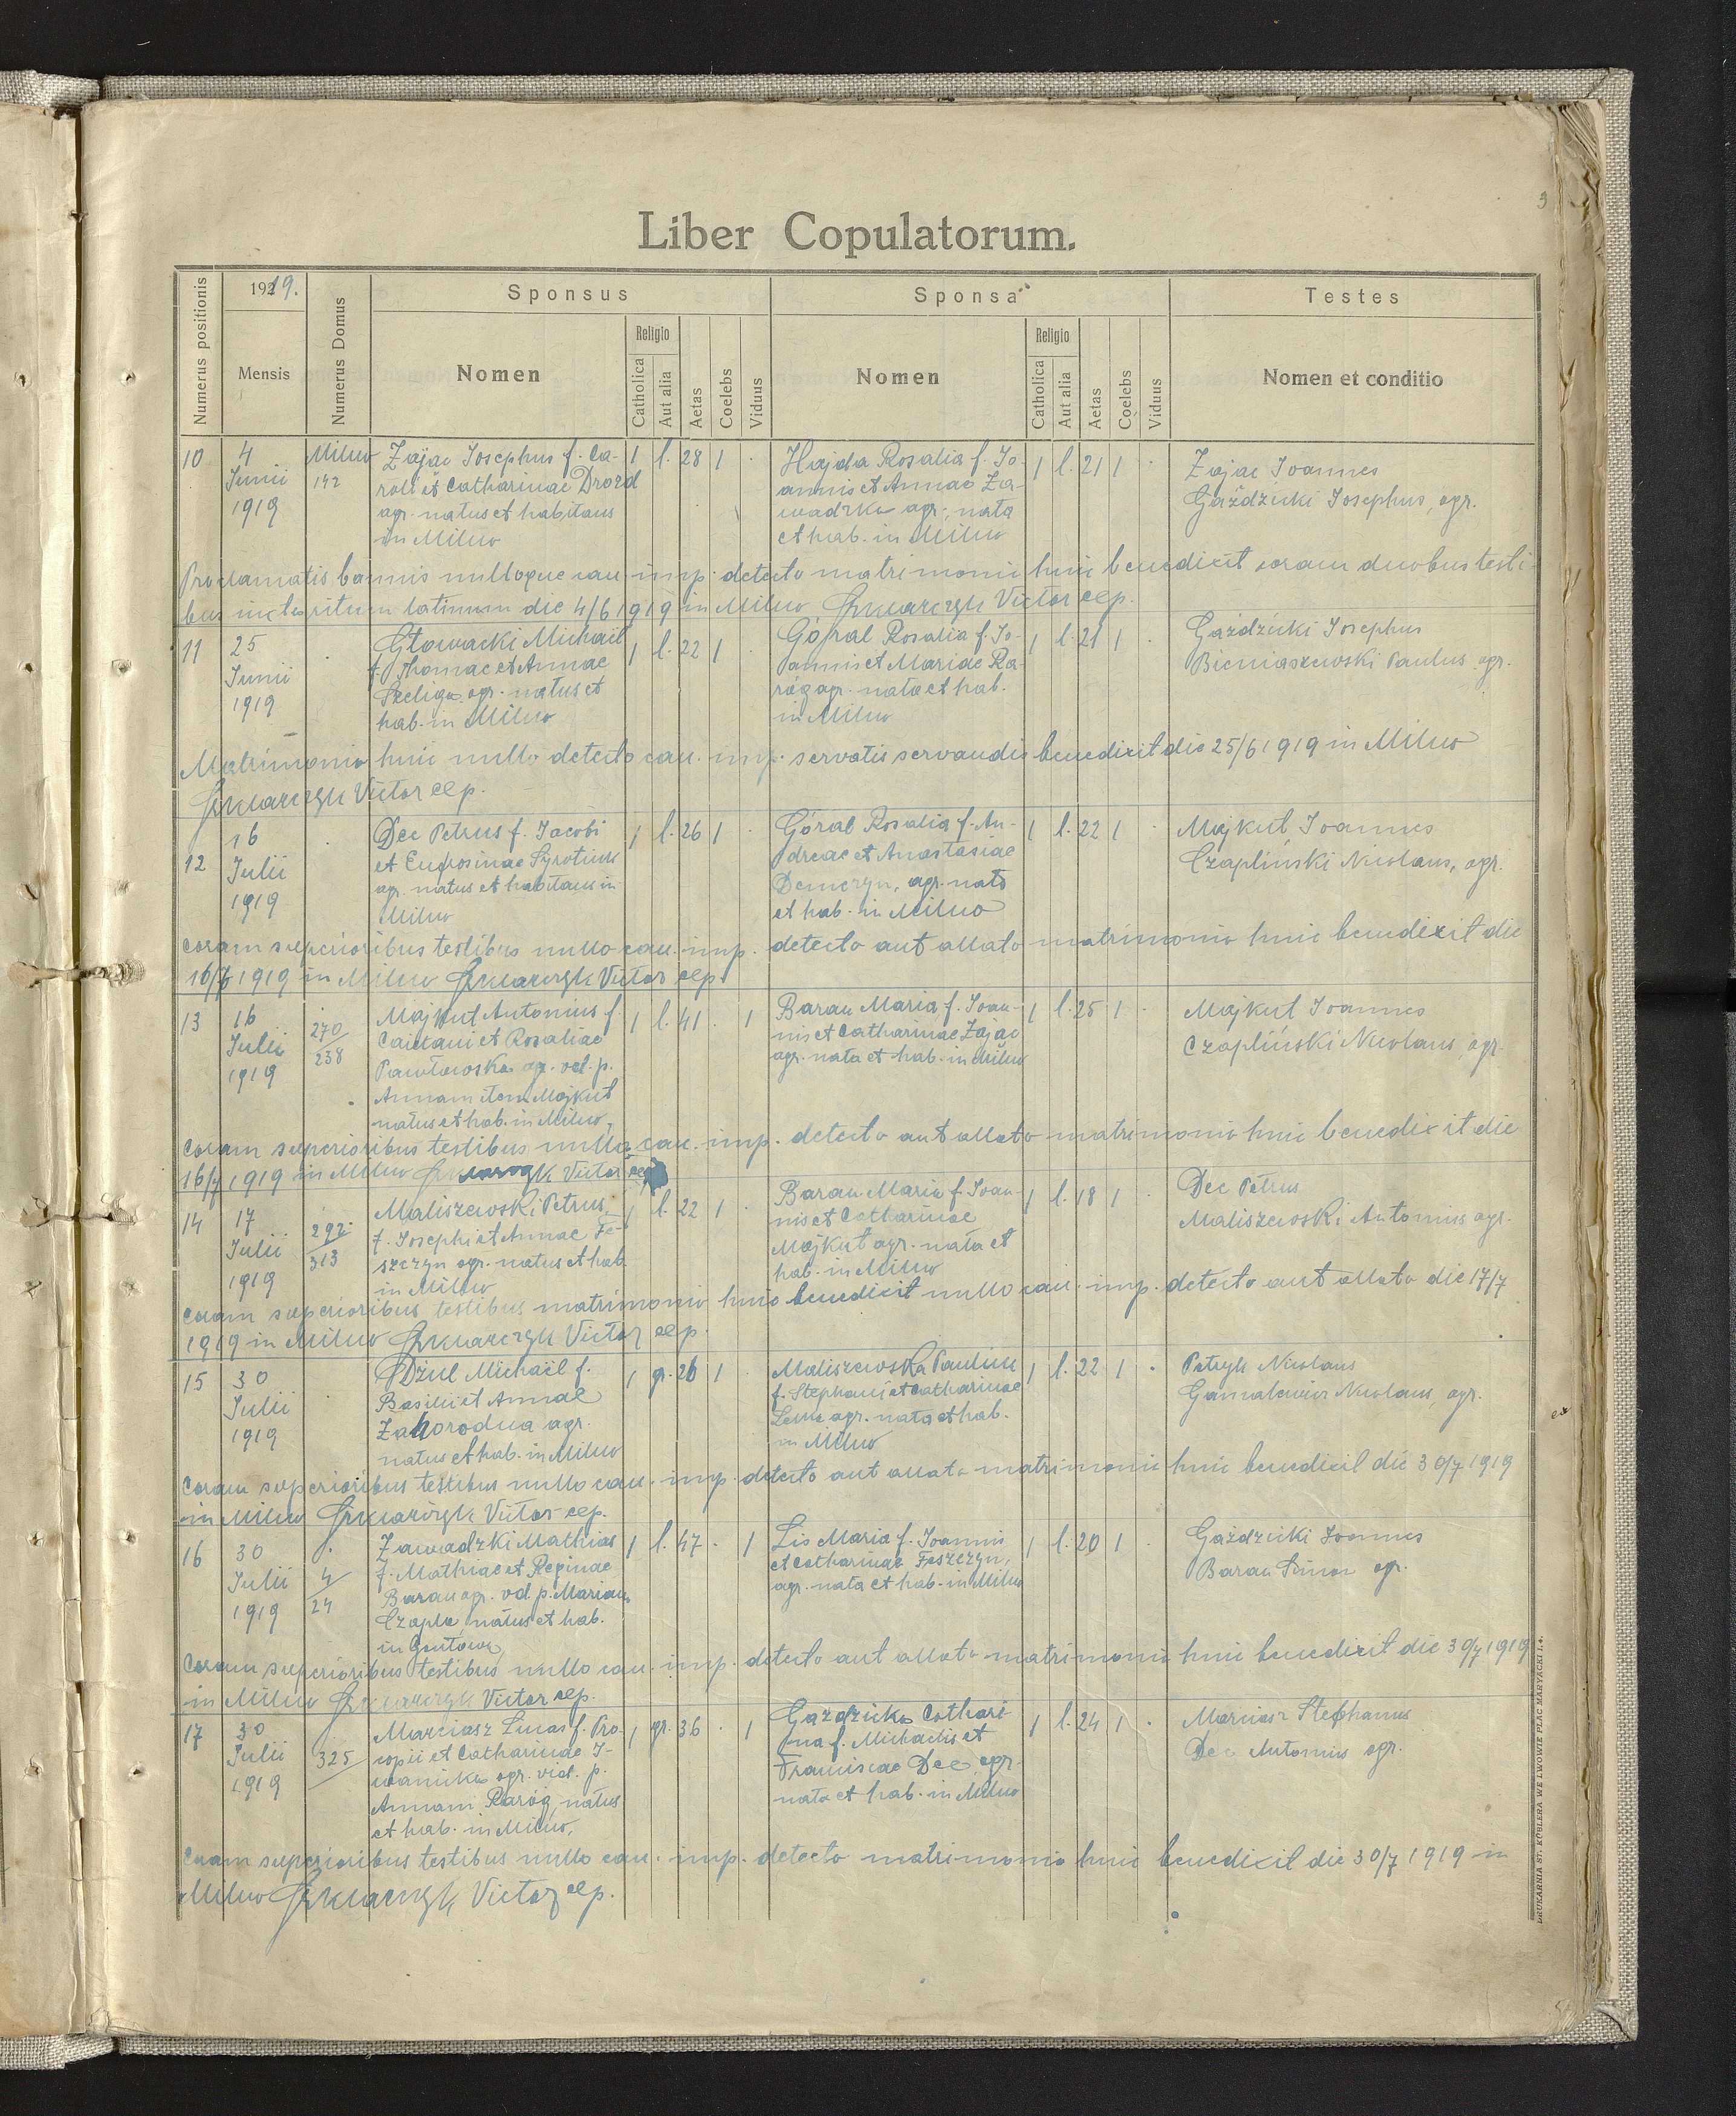 3
Liber Copulatorum.
Numerus positionis
1919.
Mensis
Numerus Domus
Sponsus
Nomen
Religio
Catholica
Aut alia
Aetas
Coelebs
Viduus
Sponsa
Nomen
Religio
Catholica
Aut alia
Aetas
Coelebs
Viduus
Testes
Nomen et conditio
10 4 Junii 1919
Milno 142
Zając Josephus f. Ca-
roli et Catharinae Drozd
agr. natus et habitans
in Milno
1 l. 28 1 .
Hajda Rosalia f. Jo-
annis et Annae Za-
wadzka agr., nata
et hab. in Milno
1 l. 21 1 .
Zając Joannes
Gaździcki Josephus, agr.
Proclamatis bannis nulloque can. imp. detecto matrimonio huic benedixit coram duobus testi-
bus iuxta ritum latinum die 4/6 1919 in Milno Szklarczyk Victor cep.
11 25 Junii 1919
Głowacki Michael
f. Thomae et Annae
Szeliga agr. natus et
hab. in Milno
1 l. 22 1 .
Góral Rosalia f. Jo-
annis et Mariae Ra-
róg agr. nata et hab.
in Milno
1 l. 21 1 .
Gaździcki Josephus
Bieniaszewski Paulus agr.
Matrimonio huic nullo detecto can. imp. servatis servandis benedixit die 25/6 1919 in Milno
Szklarczyk Victor cep.
12 16 Julii 1919
Dec Petrus f. Jacobi
et Eufrosinae
agr. natus et habitans in
Milno
1 l. 26 1 .
Góral Rosalia f. An-
dreae et Anastasiae
Demczyn, agr. nata
et hab. in Milno
1 l. 22 1 .
Majkut Joannes
Czapliński Nicolaus, agr.
Coram superioribus testibus nullo can. imp. detecto aut allato matrimonio huic benedixit die
16/7 1919 in Milno Szklarczyk Victor cep.
13 16 Julii 1919
270/238
Majkut Antonius f.
Caietani et Rosaliae
Pawłowska agr. vid. p.
Annam item Majkut
natus et hab. in Milno,
1 l. 41 . 1
Baran Maria f. Joan-
nis et Catharinae Zając
agr. nata et hab. in Milno
1 l. 25 1 .
Majkut Joannes
Czapliński Nicolaus, agr.
Coram superioribus testibus nullo can. imp. detecto aut allato matrimonio huic benedixit die
16/7 1919 in Milno Szklarczyk Victor cep
14 17 Julii 1919
292/313
Maliszewski Petrus
f. Josephi et Annae Fe-
szczyn agr. natus et hab.
in Milno
1 l. 22 1 .
Baran Maria f. Joan-
nis et Catharinae
Majkut agr. nata et
hab. in Milno
1 l. 18 1 .
Dec Petrus
Maliszewski Antonius agr.
Coram superioribus testibus matrimonio huic benedixit nullo can. imp. detecto aut allato die 17/7
1919 in Milno Szklarczyk Victor cep.
15 30 Julii 1919
Dżul Michaël f.
Basilii et Annae
Zahorodna agr.
natus et hab. in Milno
1 gr. 26 1 .
Maliszewska Paulina
f. Stephani et Catharinae
agr. nata et hab.
in Milno
1 l. 22 1 .
Petryk Nicolaus
Nicolaus, agr.
Coram superioribus testibus nullo can. imp. detecto aut allato matrimonio huic benedixit die 30/7 1919
in Milno Szklarczyk Victor cep.
16 30 Julii 1919
4/24
Zawadzki Mathias
f. Mathiae et Reginae
Baran agr. vid. p. Mariam
Czapla, natus et hab.
in Gontowa
1 l. 47 . 1
Lis Maria f. Joannis
et Catharinae Feszczyn,
agr. nata et hab. in Milno
1 l. 20 1 .
Gaździcki Joannes
Baran Simon agr.
Coram superioribus testibus nullo can. imp. detecto aut allato matrimonio huic benedixit die 30/7 1919
in Milno Szklarczyk Victor cep.
17 30 Julii 1919
325
Marciasz Lucas f. Pro-
copii et Catharinae I-
wanicka agr. vid. p.
Annam Raróg, natus
et hab. in Milno,
1 gr. 36 . 1
Gaździcka Cathari-
na f. Michaelis et
Franciscae Dec, agr.
nata et hab. in Milno
1 l. 24 1 .
Marciasz Stephanus
Dec Antonius agr.
Coram superioribus testibus nullo can. imp. detecto matrimonio huic benedixit die 30/7 1919 in
Milno Szklarczyk Victor cep.
DRUKARNIA ST. KÜBLERA WE LWOWIE PLAC MARYACKI